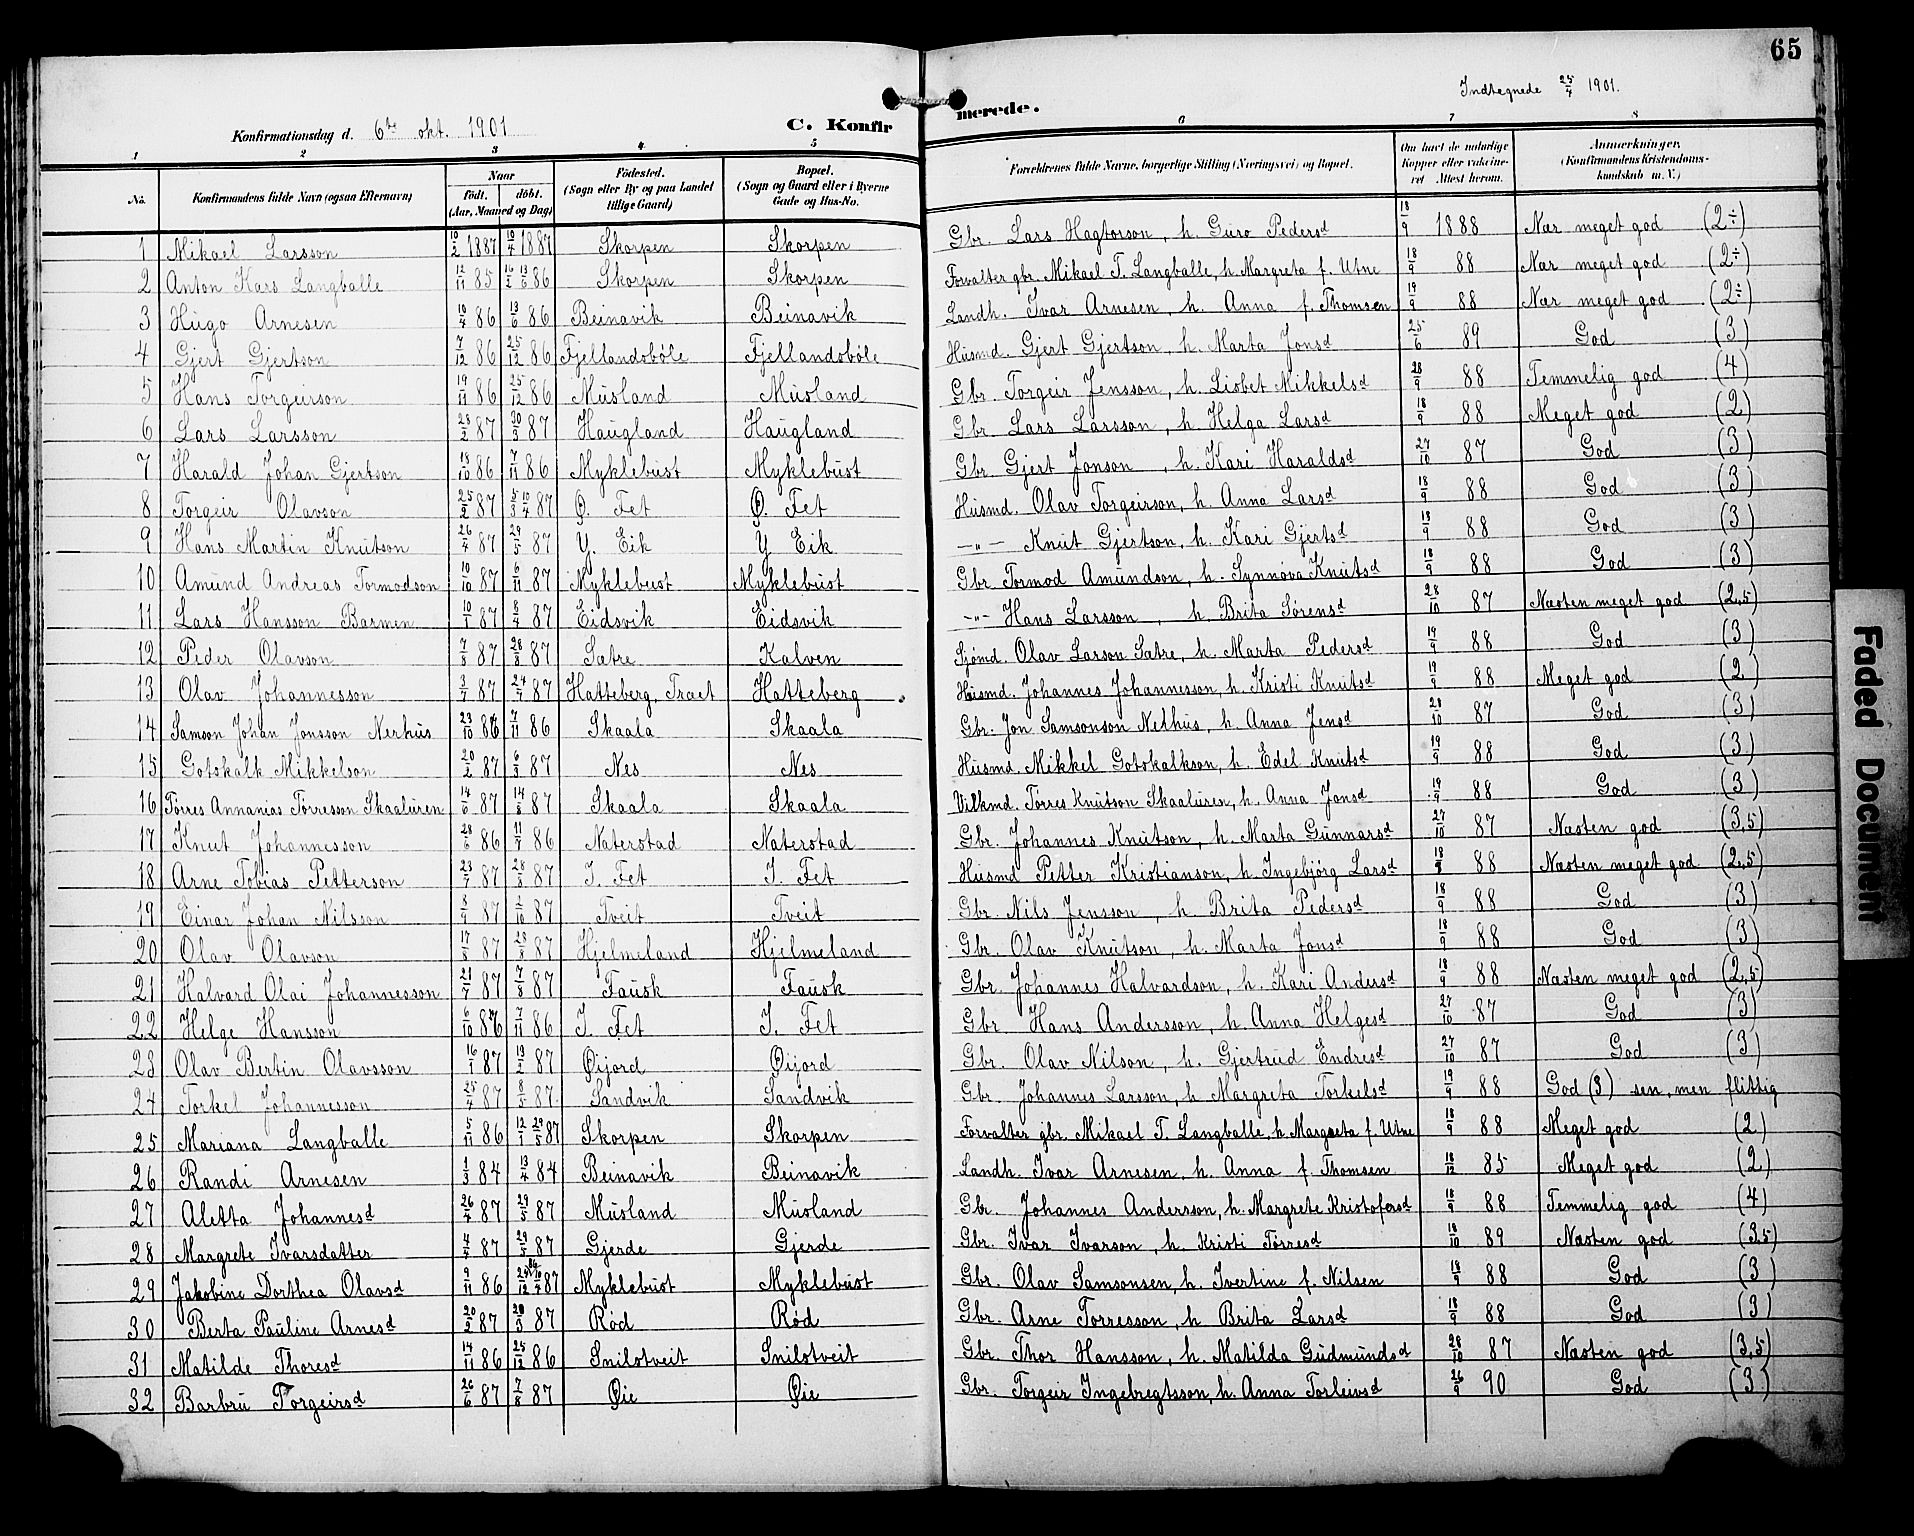 65
Indtegnede 25/4 1901.
Konfirmationsdag d. 6te okt. 1901 C. Konfirmerede.
1 2 3 4 5 6 7 8
No. Konfirmandens fulde Navn (ogsaa Efternavn) Naar født. døbt. (Aar, Maaned og Dag) Fødested. (Sogn eller By og paa Landet tillige Gaard) Bopæl. (Sogn og Gaard eller i Byerne Gade og Hus-No. Forældrenes fulde Navne, borgerlige Stilling (Næringsvei) og Bopæl. Om havt de naturlige Kopper eller vaccineret. Attest herom. Anmærkninger. (Konfirmandens Kristendomskundskab m. V.)
1 Mikael Larsson 10/2 1887 10/4 1887 Skorpen Skorpen Gbr. Lars Hagtorson, h. Guro Pedersd 18/9 1888 Nær meget god (2÷)
2 Anton Kars Langballe 12/11 85 16/2 13/6 86 Skorpen Skorpen Forvalter gbr. Mikael T. Langballe, h. Margreta f. Utne 18/9 88 Nær meget god (2÷)
3 Hugo Arnesen 10/4 86 13/6 86 Beinavik Beinavik Landh. Ivar Arnesen, h. Anna f. Thomsen 19/9 88 Nær meget god (2÷)
4 Gjert Gjertson 7/12 86 25/12 86 Fjellandsbøle Fjellandsbøle Husmd. Gjert Gjertson, h. Marta Jonsd 25/6 89 God (3)
5 Hans Torgeirson 19/11 86 25/12 86 Musland Musland Gbr. Torgeir Jensson, h. Lisbet Mikkelsd 28/9 88 Temmelig god (4)
6 Lars Larsson 28/2 87 30/3 87 Haugland Haugland Gbr. Lars Larsson, h. Helga Larsd 18/9 88 Meget god (2)
7 Harald Johan Gjertson 18/10 86 7/11 86 Myklebust Myklebust Gbr. Gjert Jonson, h. Kari Haraldsd 27/10 87 God (3)
8 Torgeir Olavson 25/2 87 5/3 10/4 87 Ø. Fet Ø. Fet Husmd. Olav Torgeirson, h. Anna Larsd 18/9 88 God (3)
9 Hans Martin Knutson 26/4 87 29/5 87 Y. Eik Y. Eik —"— Knut Gjertson, h. Kari Gjertsd 18/9 88 God (3)
10 Amund Andreas Tormodson 10/10 87 6/11 87 Myklebust Myklebust Gbr. Tormod Amundson, h. Synnøva Knutsd 18/9 88 God (3)
11 Lars Hansson Barmen 10/1 87 8/4 87 Eidsvik Eidsvik —"— Hans Larsson, h. Brita Sørensd 28/10 87 Næsten meget god (2,5)
12 Peder Olavson 7/8 87 28/8 87 Sætre Kalven Sjømd. Olav Larson Sætre, h. Marta Pedersd 19/9 88 God (3)
13 Olav Johannesson 3/7 87 24/7 87 Hatteberg, Traet Hatteberg Husmd. Johannes Johannesson, h. Kristi Knutsd 19/9 88 Meget god (2)
14 Samson Johan Jonsson Nerhus 23/10 86 7/11 86 Skaala Skaala Gbr. Jon Samsonson Nethus, h. Anna Jensd 28/10 87 God (3)
15 Gotskalk Mikkelson 20/2 87 6/3 87 Nes Nes Husmd. Mikkel Gotskalkson, h. Edel Knutsd 19/9 88 God (3)
16 Tørres Annanias Tørresson Skaaluren 14/6 87 14/8 87 Skaala Skaala Vilkmd. Tørres Knutson Skaaluren, h. Anna Jonsd 19/9 88 God (3)
17 Knut Johannesson 28/6 86 11/7 86 Naterstad Naterstad Gbr. Johannes Knutson, h. Marta Gunnarsd 27/10 87 Næsten god (3,5)
18 Arne Tobias Petterson 23/7 87 28/8 87 I. Fet I. Fet Husmd Petter Kristianson, h. Ingebjörg Larsd 18/9 88 Næsten meget god (2,5)
19 Einar Johan Nilsson 8/9 87 2/10 87 Tveit Tveit Gbr. Nils Jensson, h. Brita Pedersd 18/9 88 God (3)
20 Olav Olavson 17/8 87 28/8 87 Hjelmeland Hjelmeland Gbr. Olav Knutson, h. Marta Jonsd 18/9 88 God (3)
21 Halvard Olai Johannesson 21/7 87 7/8 87 Fausk Fausk Gbr. Johannes Halvardson, h. Kari Andersd 18/9 88 Næsten meget god (2,5)
22 Helge Hansson 6/10 86 7/11 86 I. Fet I. Fet Gbr. Hans Andersson, h. Anna Helgesd 27/10 87 God (3)
23 Olav Bertin Olavsson 16/1 87 13/2 87 Øijord Øijord Gbr. Olav Nilson, h. Gjertrud Endresd 27/10 87 God (3)
24 Torkel Johannesson 25/4 87 8/5 87 Sandvik Sandvik Gbr. Johannes Larsson, h. Margreta Torkelsd 19/9 88 God (3) sen, men flittig
25 Mariana Langballe 5/11 86 12/1 29/5 87 Skorpen Skorpen Forvalter gbr. Mikael T. Langballe, h. Margreta f. Utne 18/9 88 Meget god (2)
26 Randi Arnesen 1/3 84 13/4 84 Beinavik Beinavik Landh. Ivar Arnesen, h. Anna f. Thomsen 18/12 85 Meget god (2)
27 Aletta Johannesd 26/4 87 29/5 87 Musland Musland Gbr. Johannes Andersson, h. Margrete Kristofersd 18/9 88 Temmelig god (4)
28 Margrete Ivarsdatter 4/4 87 29/5 87 Gjerde Gjerde Gbr. Ivar Ivarson, h. Kristi Tørresd 18/10 89 Næsten god (3,5)
29 Jakobine Dorthea Olavsd 9/11 86 24/12 86 10/4 87 Myklebust Myklebust Gbr. Olav Samsonsen, h. Ivertine f. Nilsen 18/9 88 God (3)
30 Berta Pauline Arnesd 20/2 87 20/3 87 Rød Rød Gbr. Arne Torresson, h Brita Larsd 18/9 88 God (3)
31 Matilde Thoresd 14/11 86 25/12 86 Snilstveit Snilstveit Gbr. Thor Hansson, h. Matilda Gudmundsd 28/10 87 Næsten god (3,5)
32 Barbru Torgeirsd 26/6 87 7/8 87 Øie Øie Gbr. Torgeir Ingebregtsson, h. Anna Torleivsd 26/9 90 God (3)
Faded Document